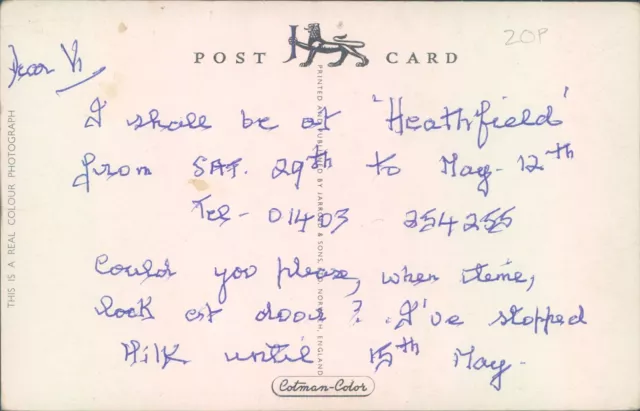 20P
POST CARD
Dear Vi
I shall be at 'Heathfield'
from SAT. 29th to May - 12th
Tel - 01403 254255
Could you please, when time,
look at door? I've stopped
Milk until 15th May -
Cotman-Color
THIS IS A REAL COLOUR PHOTOGRAPH
PRINTED AND PUBLISHED BY JARROLD & SONS, LTD. NORWICH, ENGLAND